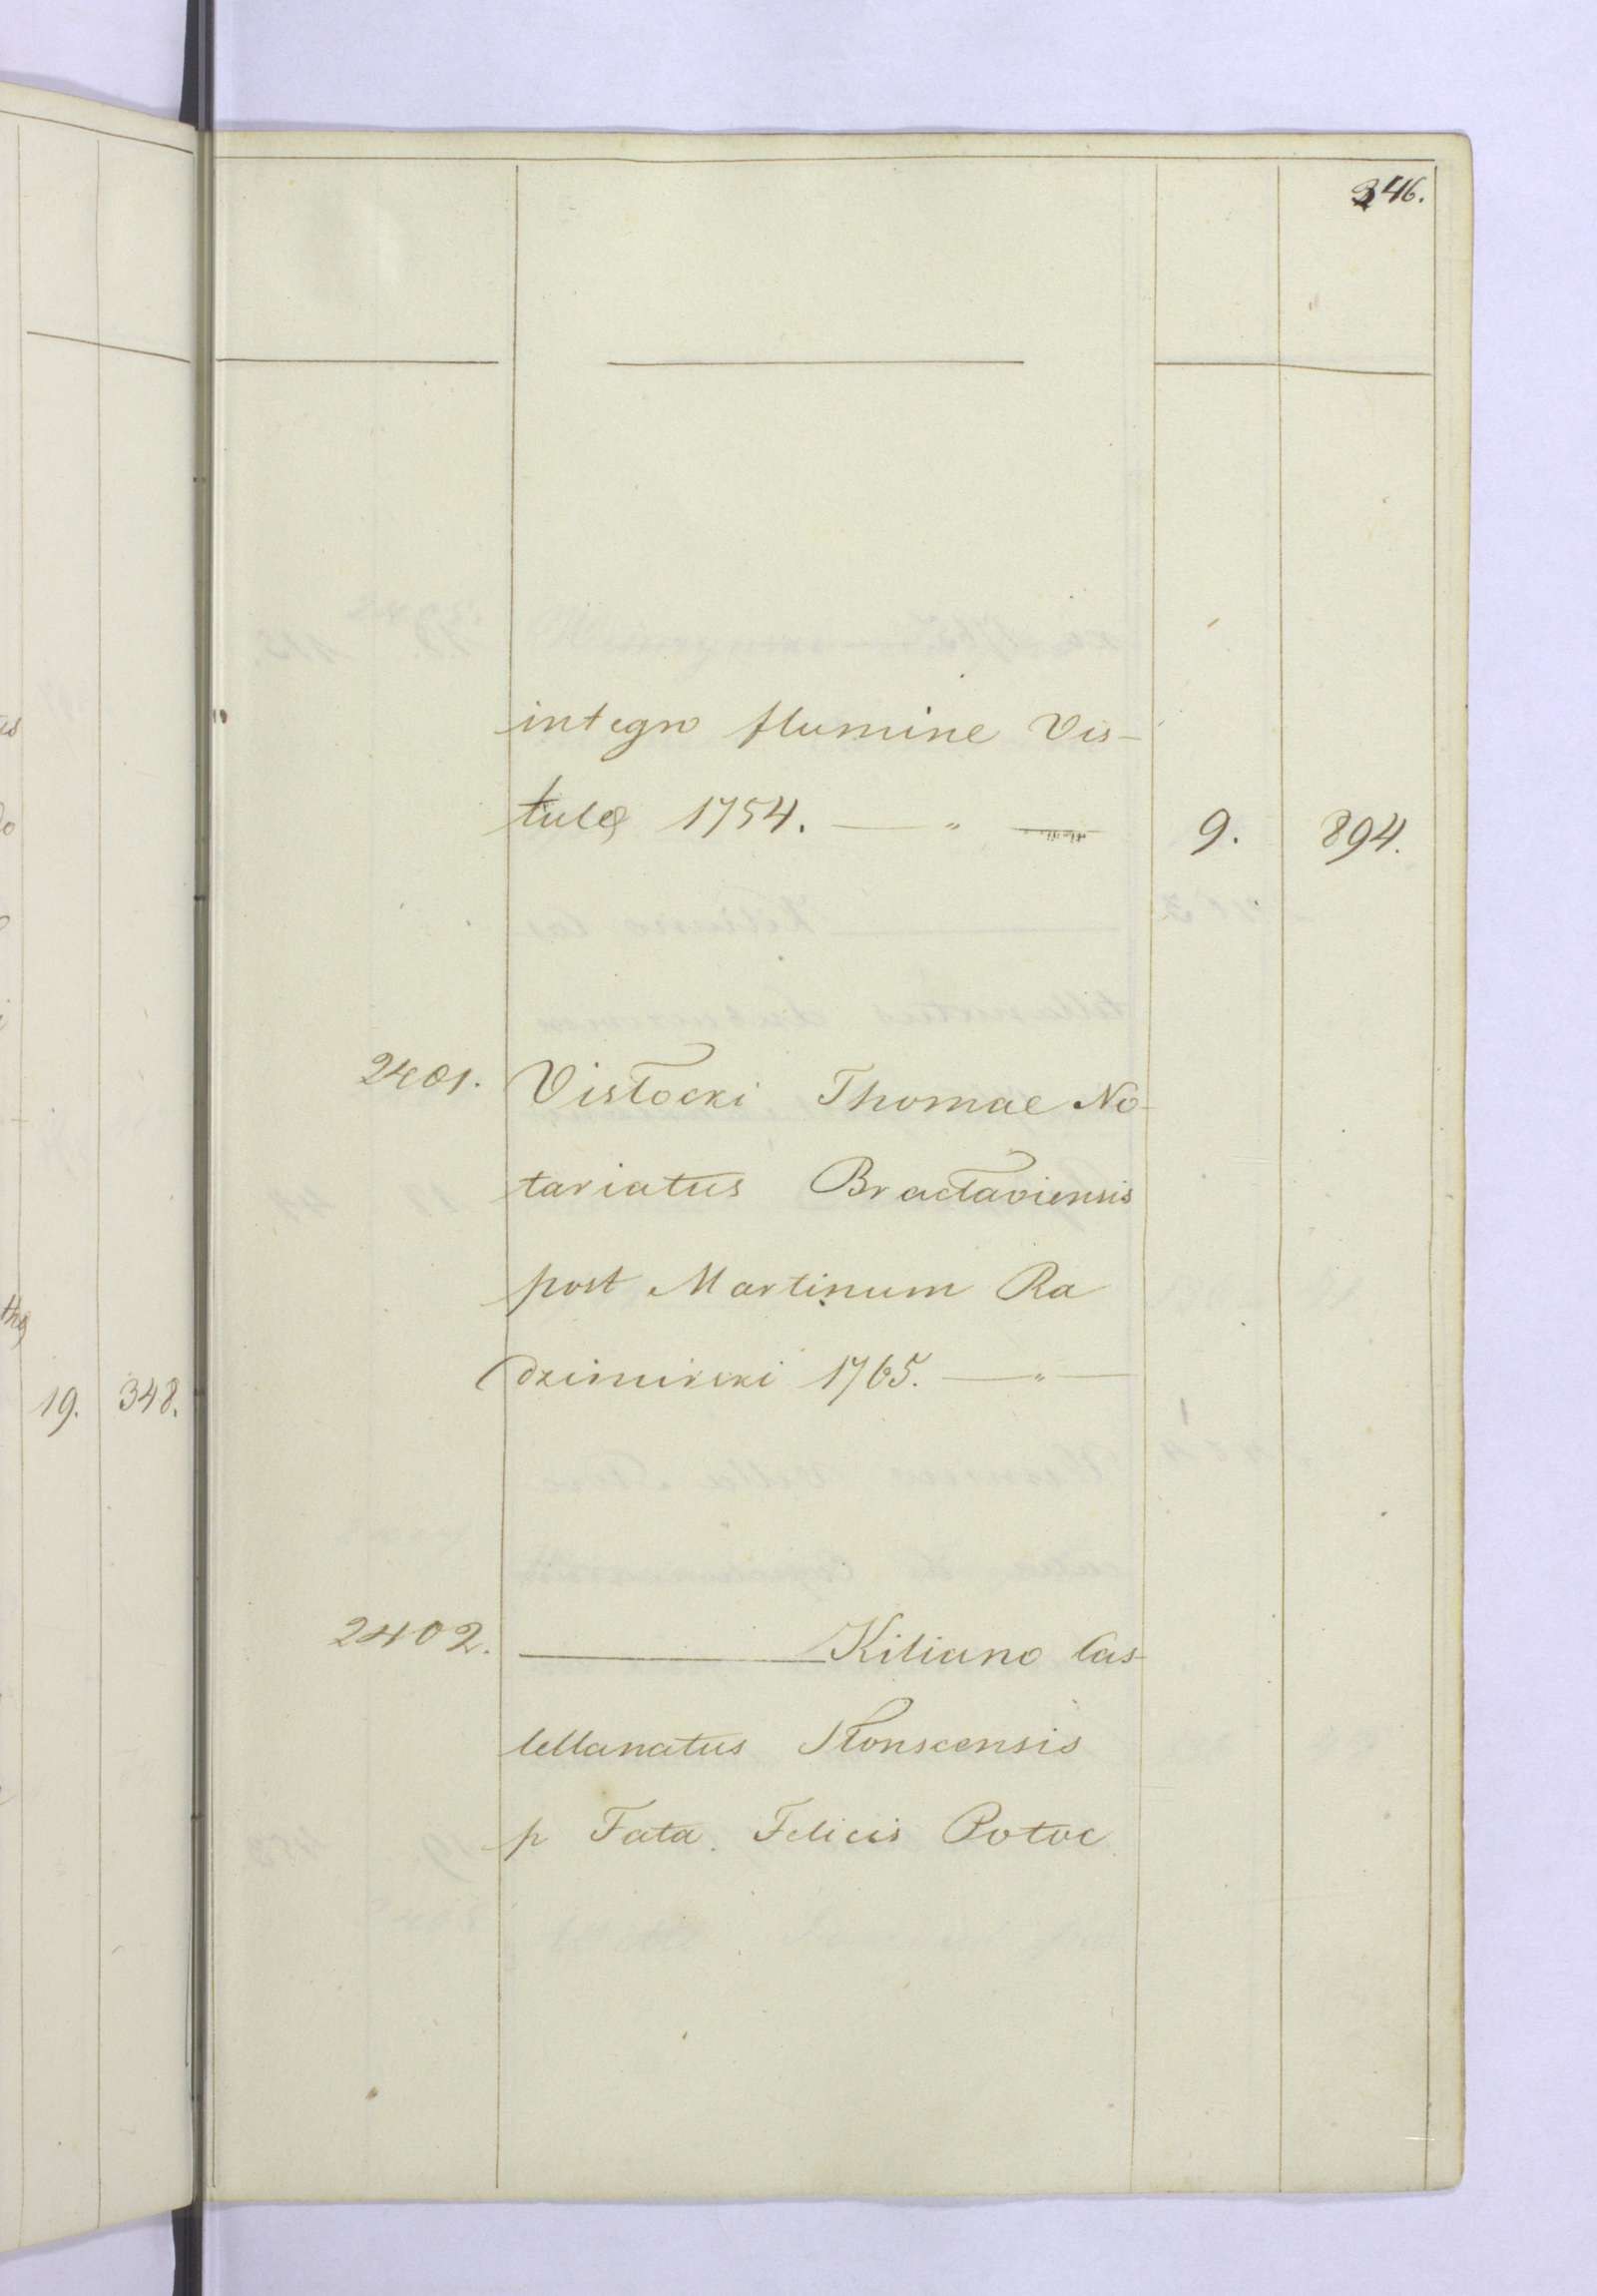 346.
integro flumine Vis-
tulę 1754. — " — 9. 894.
2401. Vistocki Thomae No-
tariatus Bractaviensis
post Martinum Ra
dzimirski 1765. — " —
2402. — Kiliano Cas-
tellanatus Słonscensis
p Fata Felicis Potoc
19. 348.